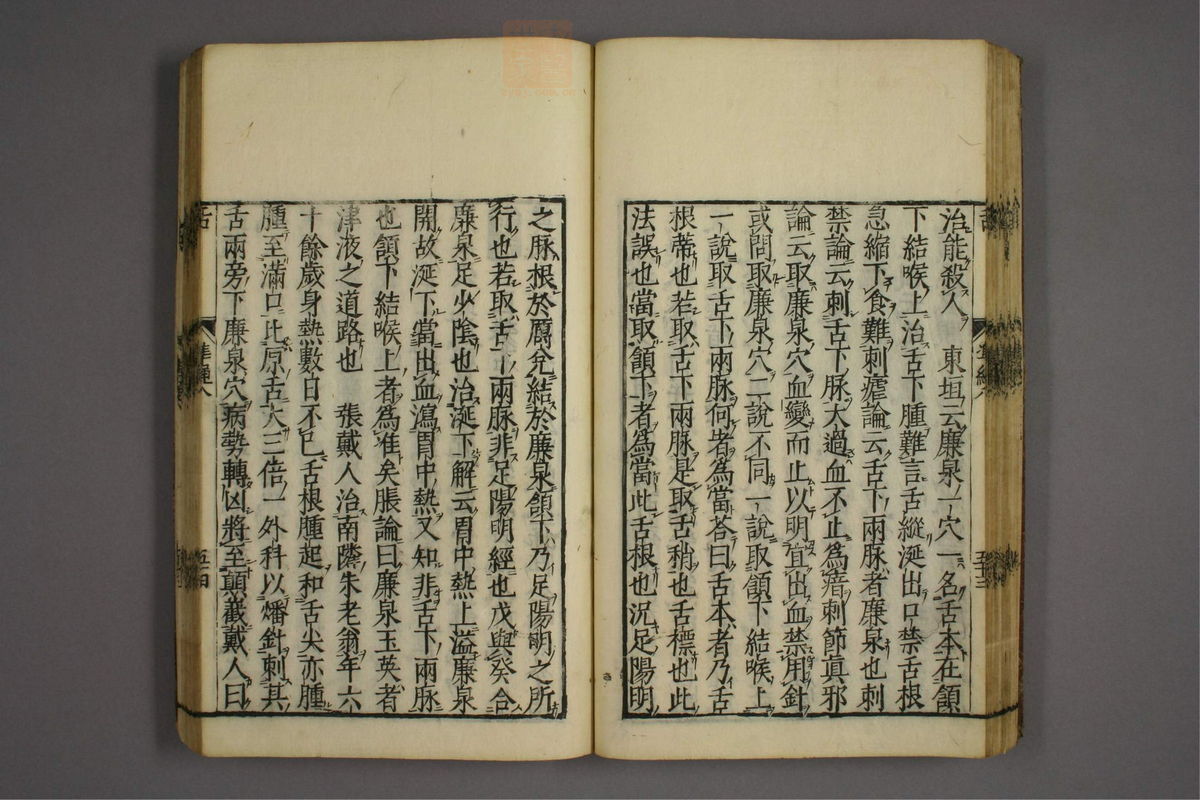 治能殺人　東垣云廉泉一穴一名舌本在頷
下結喉上治舌下腫難言舌縱涎出口禁舌根
急縮下食難刺瘧論云舌下兩脉者廉泉也刺
禁論云刺舌下脉太過血不止爲瘖刺節眞邪
論云取廉泉穴血變而止以明宜出血禁用針
或問取廉泉穴二說不同一說取頷下結喉上
一說取舌下兩脉何者爲當荅曰舌本者乃舌
根蒂也若取舌下兩脉是取舌稍也舌標也此
法誤也當取頷下者爲當此舌根也況足陽明
之脉根於厲兌結於廉泉頷下乃足陽明之所
行也若取舌下兩脉非足陽明經也戊與癸合
廉泉足少陰也治涎下解云胃中熱上溢廉泉
開故涎下當出血瀉胃中熱又知非舌下兩脉
也頷下結喉上者爲准矣脹論曰廉泉玉英者
津液之道路也　張戴人治南隣朱老翁年六
十餘歲身熱數日不已舌根腫起和舌尖亦腫
腫至滿口比原舌大三倍一外科以燔針刺其
舌兩旁下廉泉穴病勢轉凶將至顚蹷戴人曰
舌
準繩八
五十四